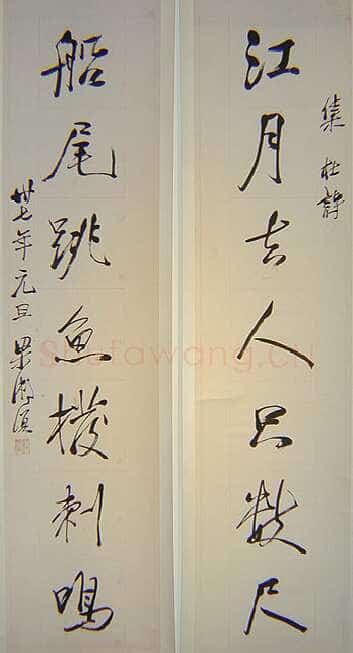 集杜詩
江月去人只數尺
船尾跳魚撥刺鳴
卅七年元旦 梁漱溟
Shufawang.cn